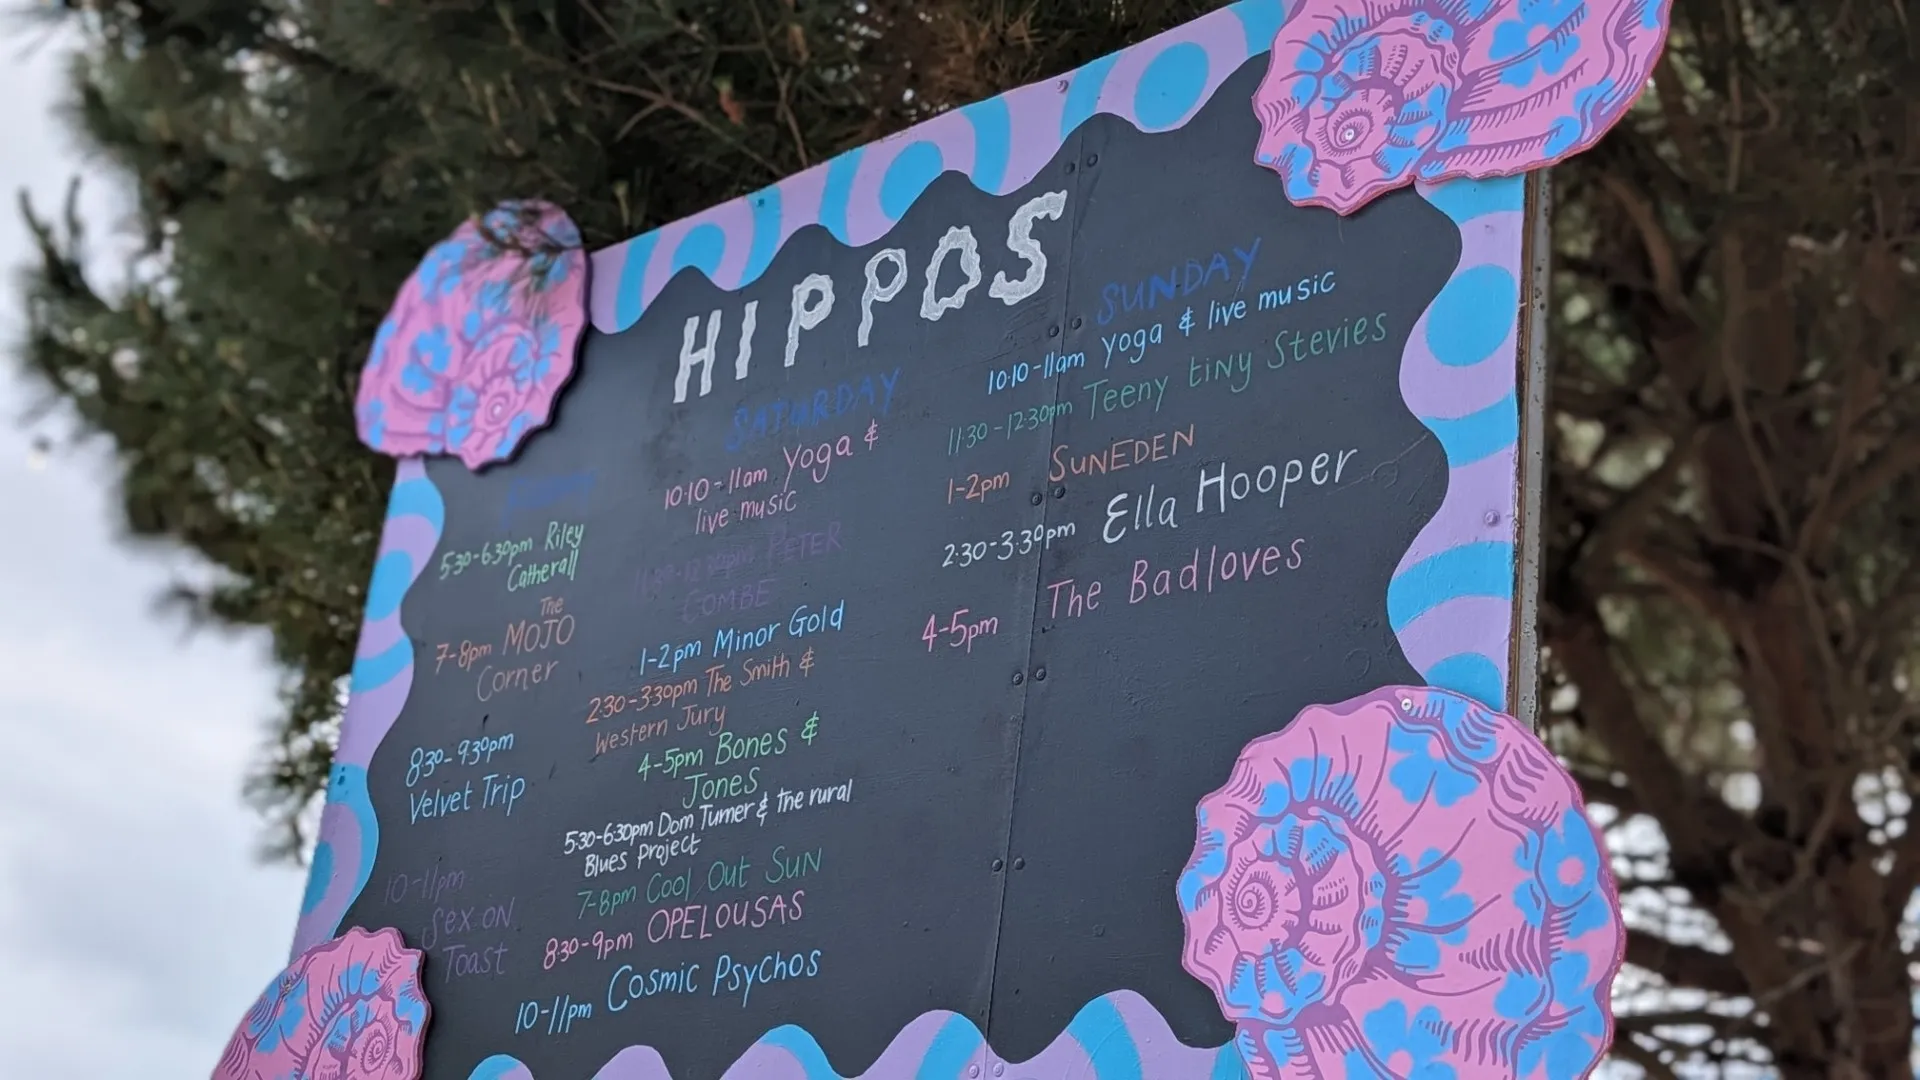 HIPPOS
FRIDAY
5:30-6:30pm Riley
Catherall
7-8pm The MOJO
Corner
8:30-9:30pm
Velvet Trip
10-11pm
Sex on
Toast
SATURDAY
10·10-11am Yoga &
live music
11:30-12:30pm PETER
COMBE
1-2pm Minor Gold
2:30-3:30pm The Smith &
Western Jury
4-5pm Bones &
Jones
5:30-6:30pm Dom Turner & the rural
Blues Project
7-8pm Cool Out SUN
8:30-9pm OPELOUSAS
10-11pm Cosmic Psychos
SUNDAY
10·10-11am Yoga & live music
11:30-12:30pm Teeny tiny Stevies
1-2pm SUNEDEN
2:30-3:30pm Ella Hooper
4-5pm The Badloves